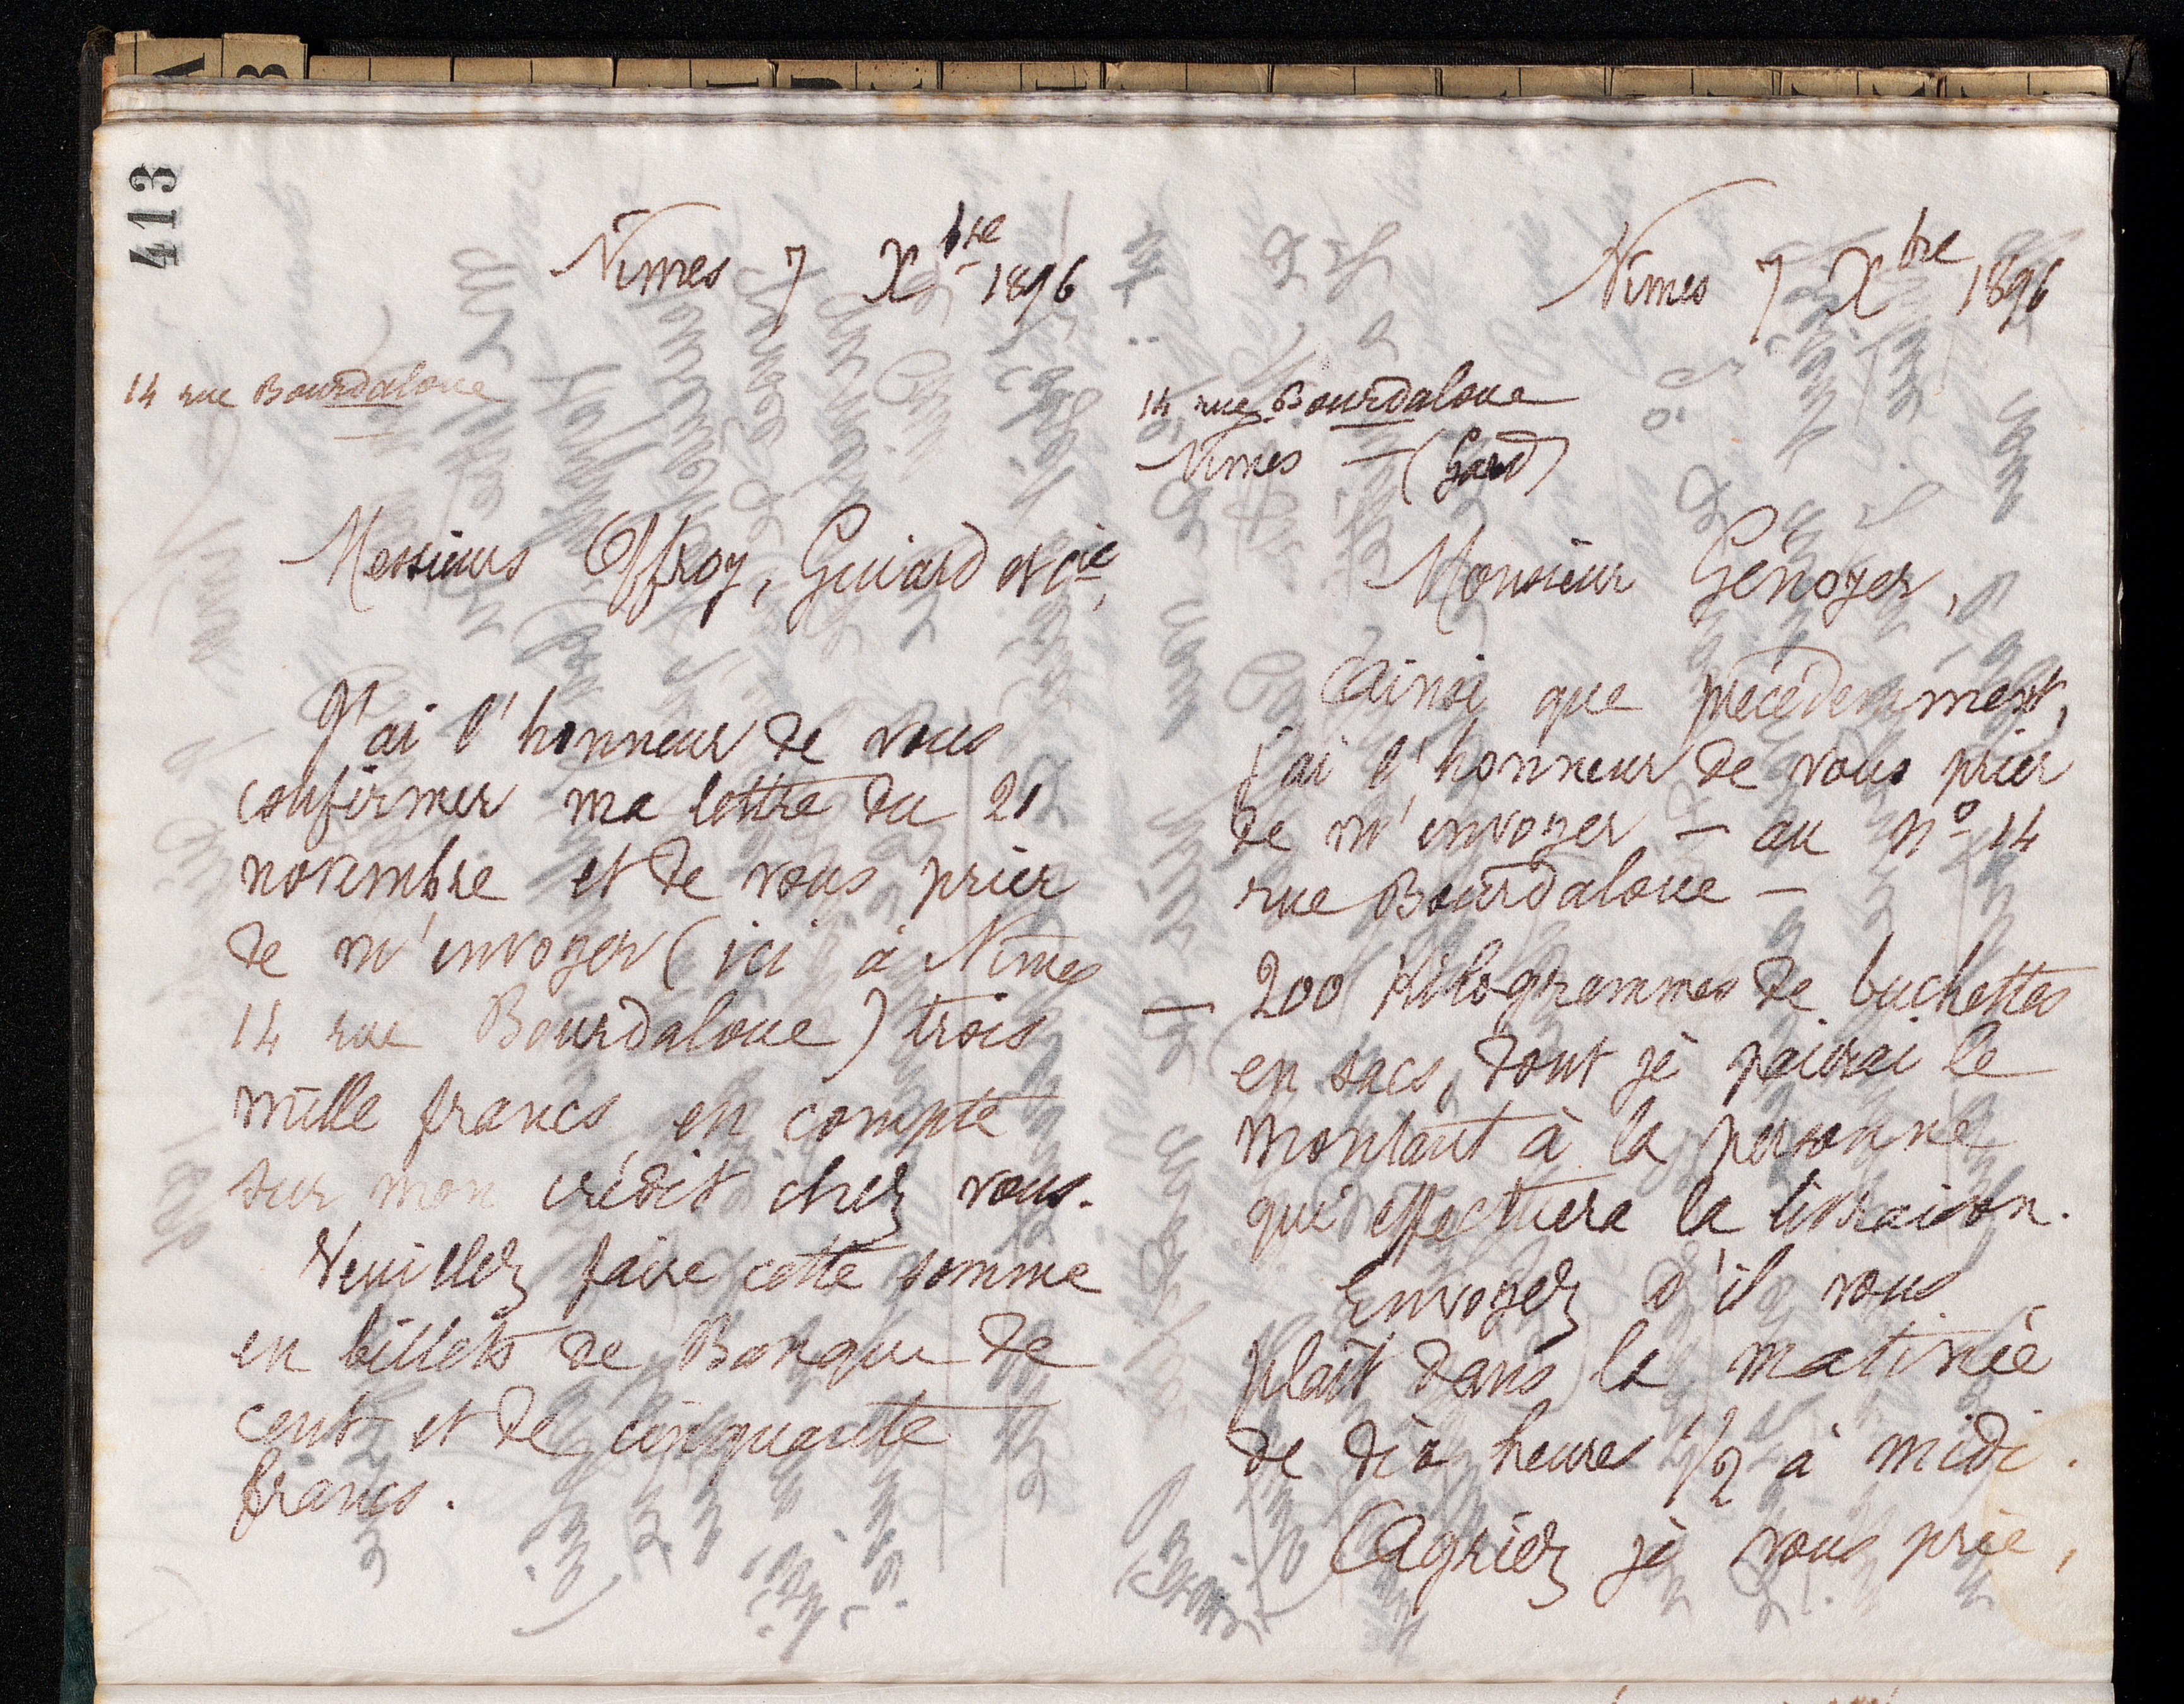 413
Nimes 7 Xbre 1896
14 rue Bourdaloue
Messieurs Offroy, Guiard et Cie,
J'ai l'honneur de vous
confirmer ma lettre du 21
novembre et de vous prier
de m'envoyer (ici à Nimes
14 rue Bourdaloue) trois
mille francs en compte
sur mon crédit chez vous.
Veuillez faire cette somme
en billets de Banque de
cent et de cinquante
francs.
Nimes 7 Xbre 1896
14 rue Bourdaloue
Nimes - (Gard)
Monsieur Génoyer,
Ainsi que précédemment,
j'ai l'honneur de vous prier
de m'envoyer - au no 14
rue Bourdaloue -
- 200 Kilogrammes de buchettes
en sacs, dont je paierai le
montant à la personne
qui effectuera la livraison.
Envoyez s'il vous
plaît dans la matinée
de dix heures 1/2 à midi.
Agréez je vous prie,